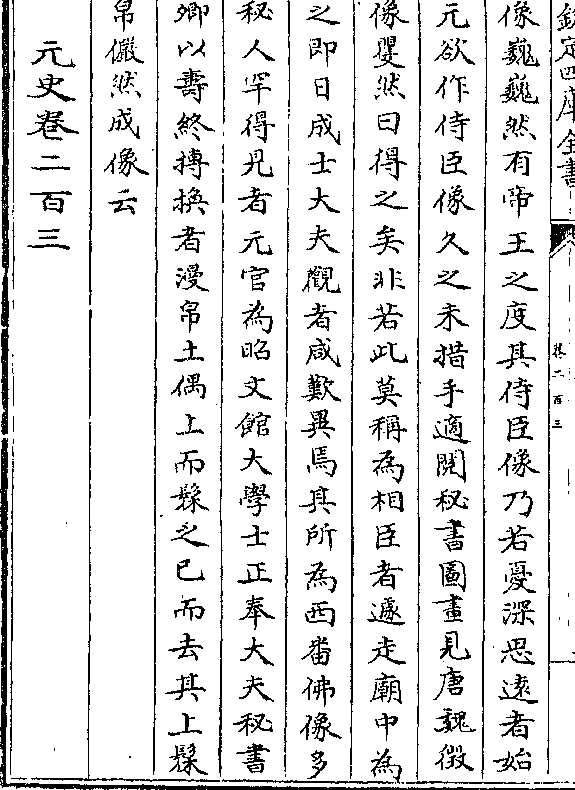 欽定四庫全書
卷二百三
像巍巍然有帝王之度其侍臣像乃若憂深思遠者始
元欲作侍臣像久之未措手適閱秘書圖畫見唐魏徴
像矍然曰得之矣非若此莫稱為相臣者遽走廟中為
之即日成士大夫觀者咸歎異焉其所為西番佛像多
秘人罕得見者元官為昭文館大學士正奉大夫秘書
卿以壽終摶換者漫帛土偶上而髹之已而去其土髹
帛儼然成像云
元史卷二百三